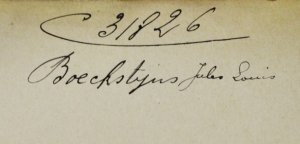 31826
Boeckstyns Jules Louis